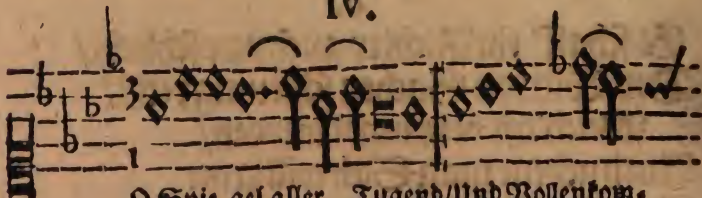 IV.
3
1
O Spie-gel aller Tugend/Und Vollenkom-